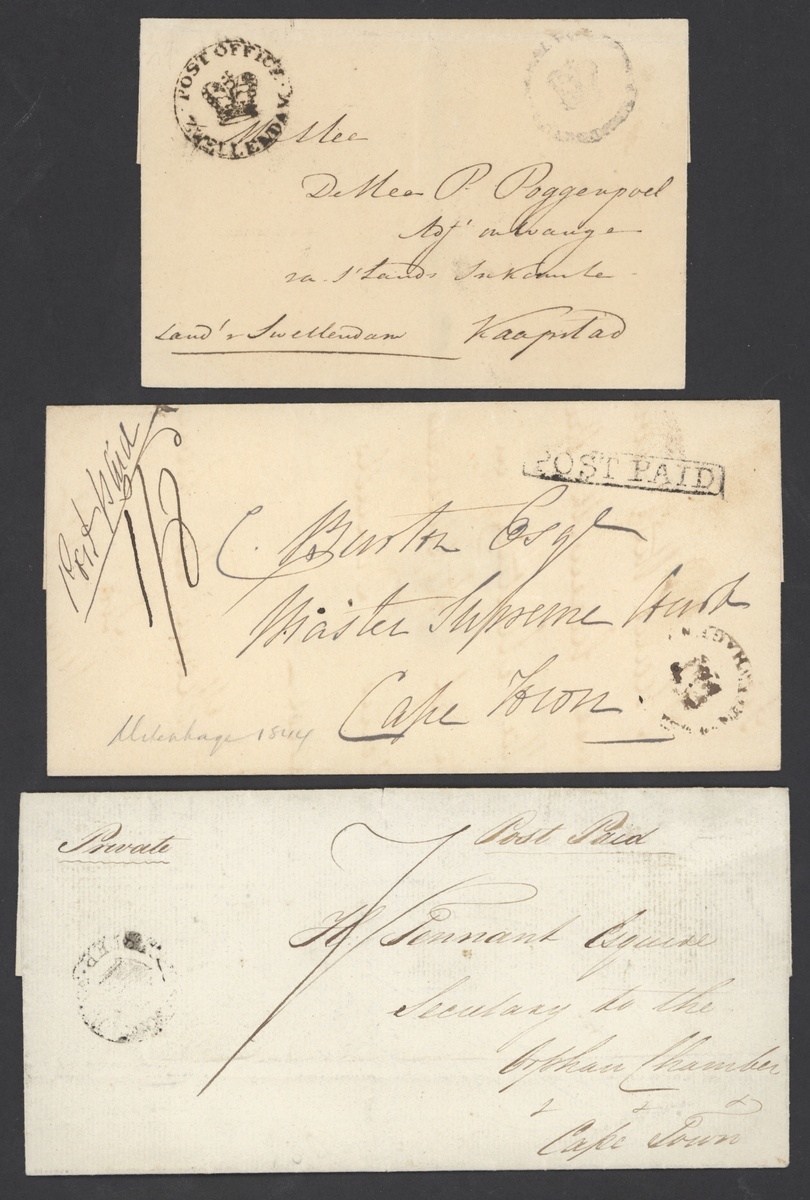 POST OFFICE
ZWELLENDAM
De Heer P. Poggenpoel
Kaapstad
Land'r Swellendam
Post Paid
POST PAID
C. Burton Esqr
Master Supreme Court
Cape Town
Uitenhage 1844
Private
Post Paid
7
H. Tennant Esquire
Secretary to the
Orphan Chamber
Cape Town